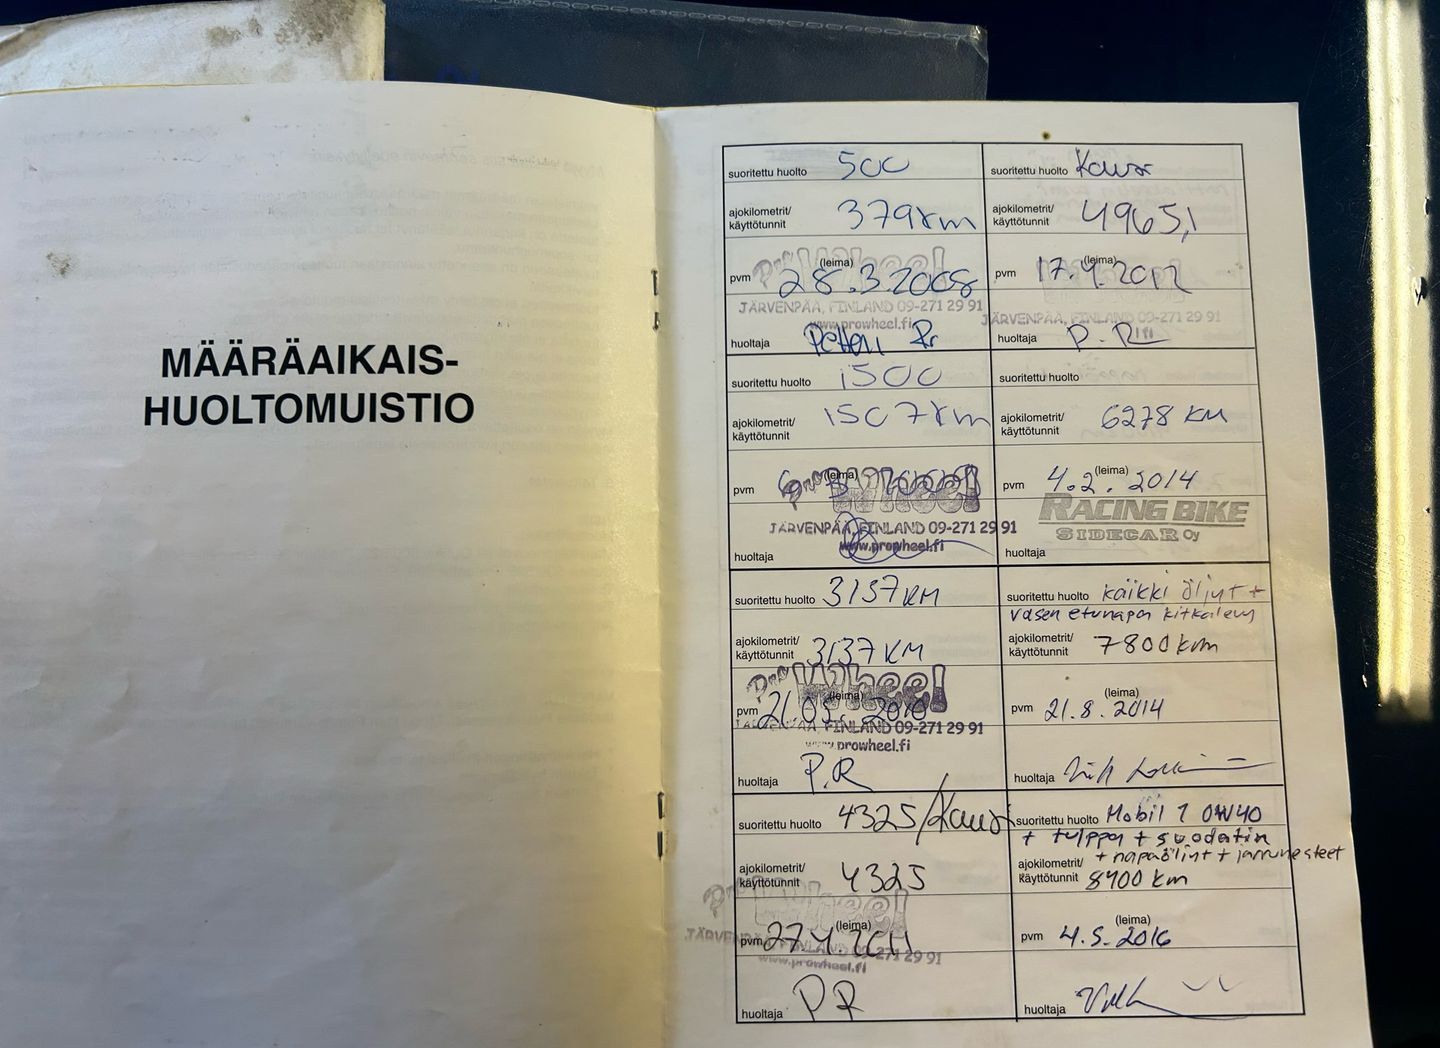 MÄÄRÄAIKAIS-
HUOLTOMUISTIO
suoritettu huolto 500
ajokilometrit/
käyttötunnit 379km
(leima)
pvm 28.3.2008
Pro Wheel
JÄRVENPÄÄ, FINLAND 09-271 29 91
www.prowheel.fi
huoltaja Petteri R.
suoritettu huolto 1500
ajokilometrit/
käyttötunnit 1507km
(leima)
pvm
Pro Wheel
JÄRVENPÄÄ, FINLAND 09-271 29 91
www.prowheel.fi
huoltaja
suoritettu huolto 3137KM
ajokilometrit/
käyttötunnit 3137KM
Pro Wheel
(leima)
pvm 21.05. 2010
JÄRVENPÄÄ, FINLAND 09-271 29 91
www.prowheel.fi
huoltaja P.R
suoritettu huolto 4325/Kausi
ajokilometrit/
käyttötunnit 4325
Pro Wheel
(leima)
pvm 27.4.2011
JÄRVENPÄÄ, FINLAND 09-271 29 91
www.prowheel.fi
huoltaja P R
suoritettu huolto Kausi
ajokilometrit/
käyttötunnit 4965,1
(leima)
pvm 17.4.2012
JÄRVENPÄÄ, FINLAND 09-271 29 91
huoltaja P.
suoritettu huolto
ajokilometrit/
käyttötunnit 6278 KM
(leima)
pvm 4.2. 2014
RACING BIKE
SIDECAR Oy
huoltaja
suoritettu huolto kaikki öljyt +
vasen etunapa kitkalevy
ajokilometrit/
käyttötunnit 7800km
(leima)
pvm 21.8.2014
huoltaja
suoritettu huolto Mobil 1 0W40
+ tulppa + suodatin
+ napaöljyt + jarrunesteet
ajokilometrit/
käyttötunnit 8400 km
(leima)
pvm 4.5.2016
huoltaja